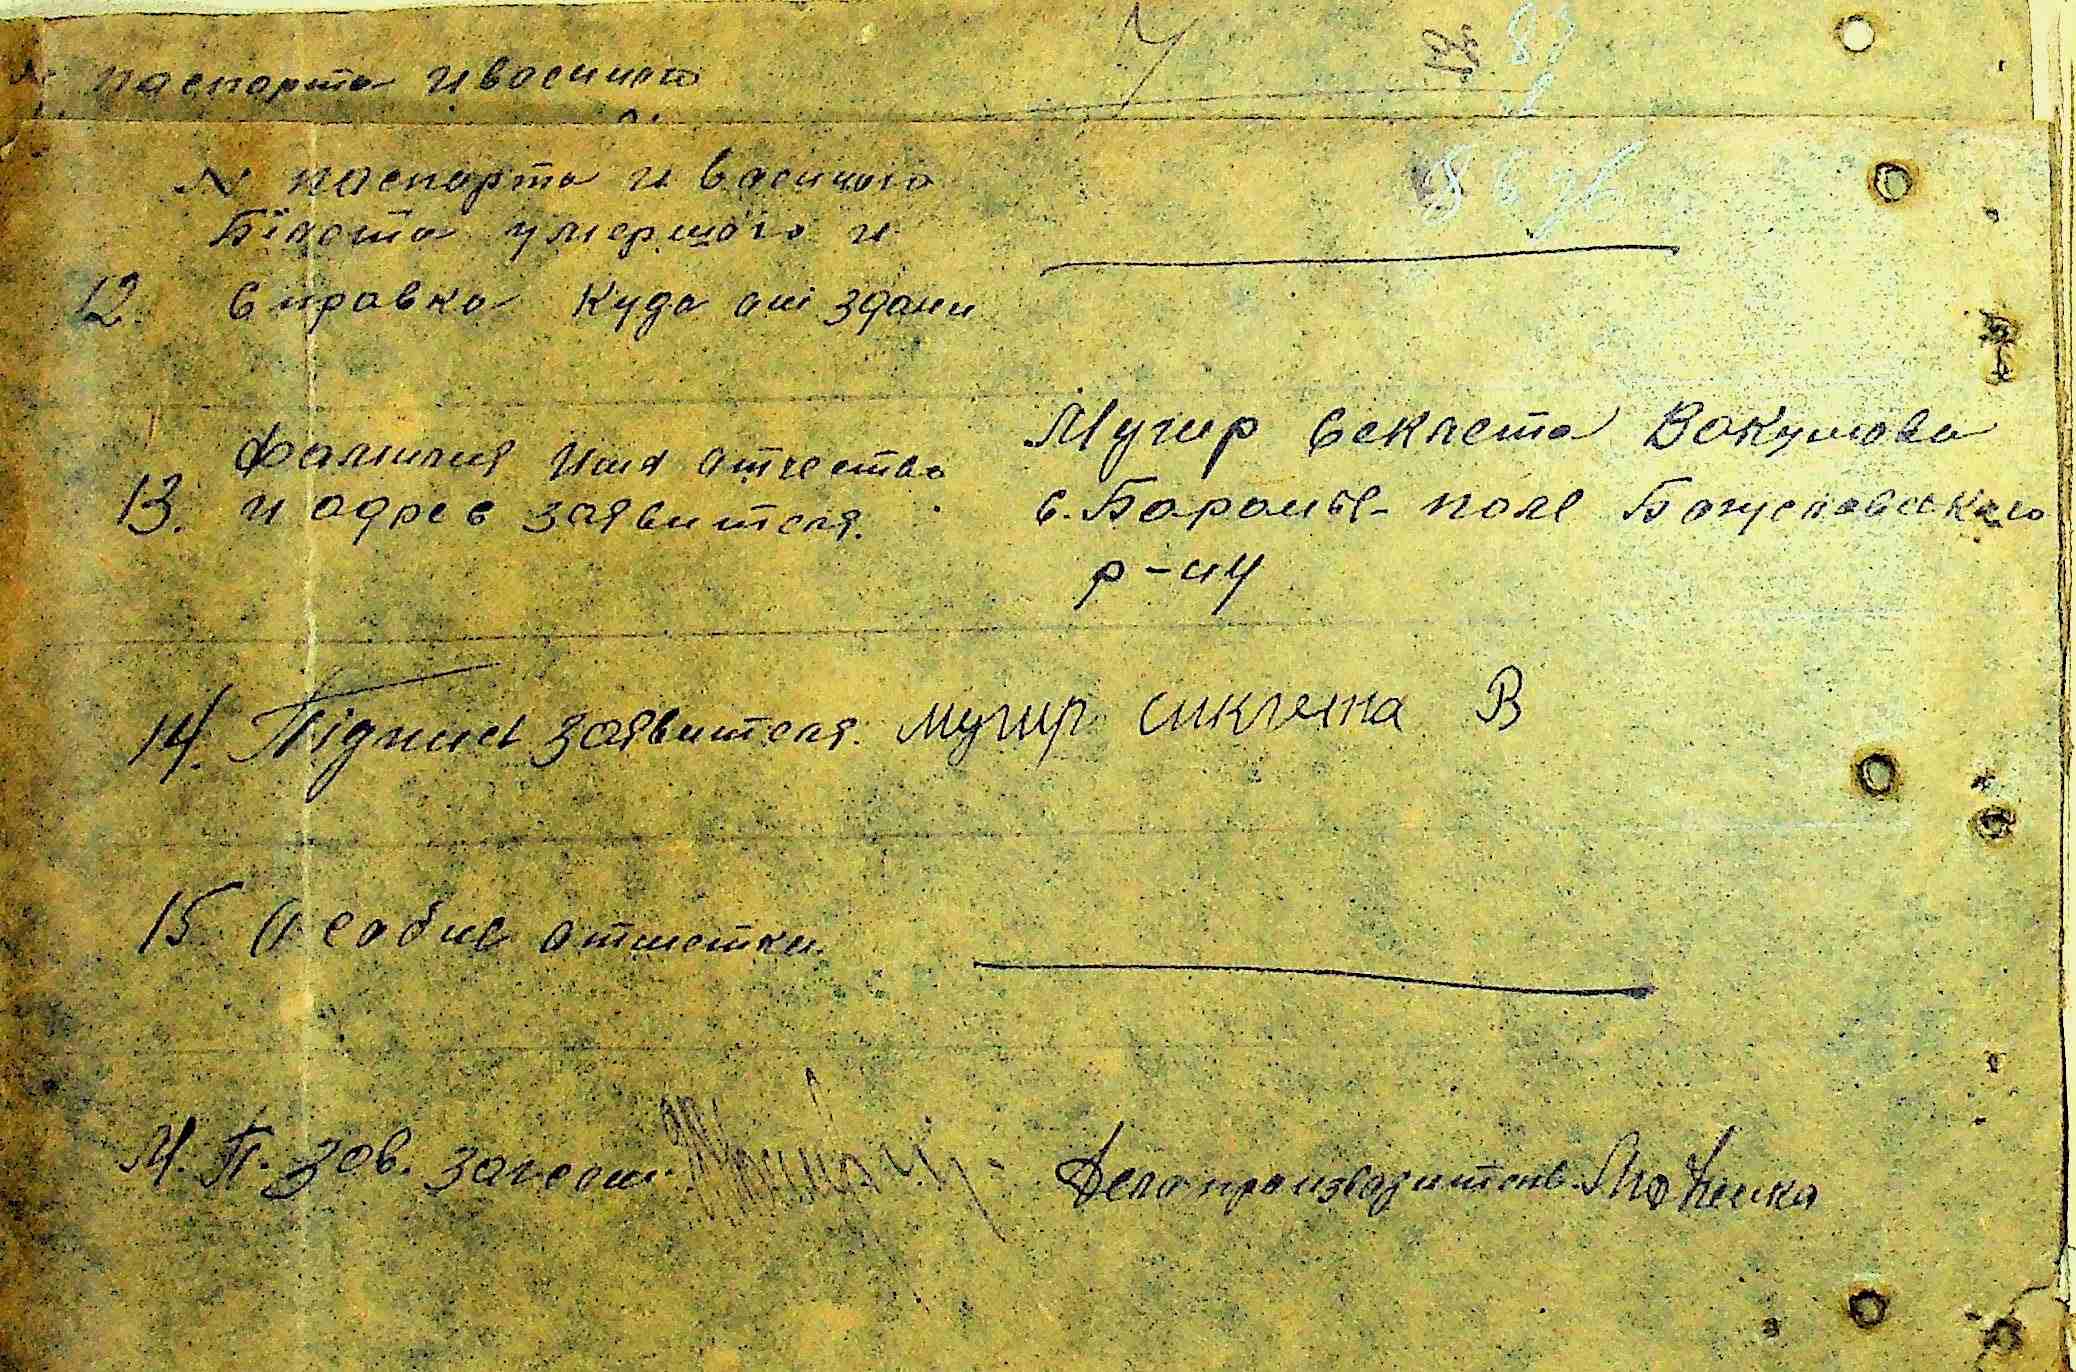 паспорта и воєнного
№ паспорта и воєнного
Білєта умершого и
12. Справка куда ані здани
Фамилия Имя отчество
13. и адрес заявителя.
Мугир Секлета Вакумовна
с. Бараньє-поле Богуславского
р-ну
14. Підпись заявителя. Мугир Сиклета В
15 Особиє отметки.
М.П. Зав. загсом.
Делопроизводитель